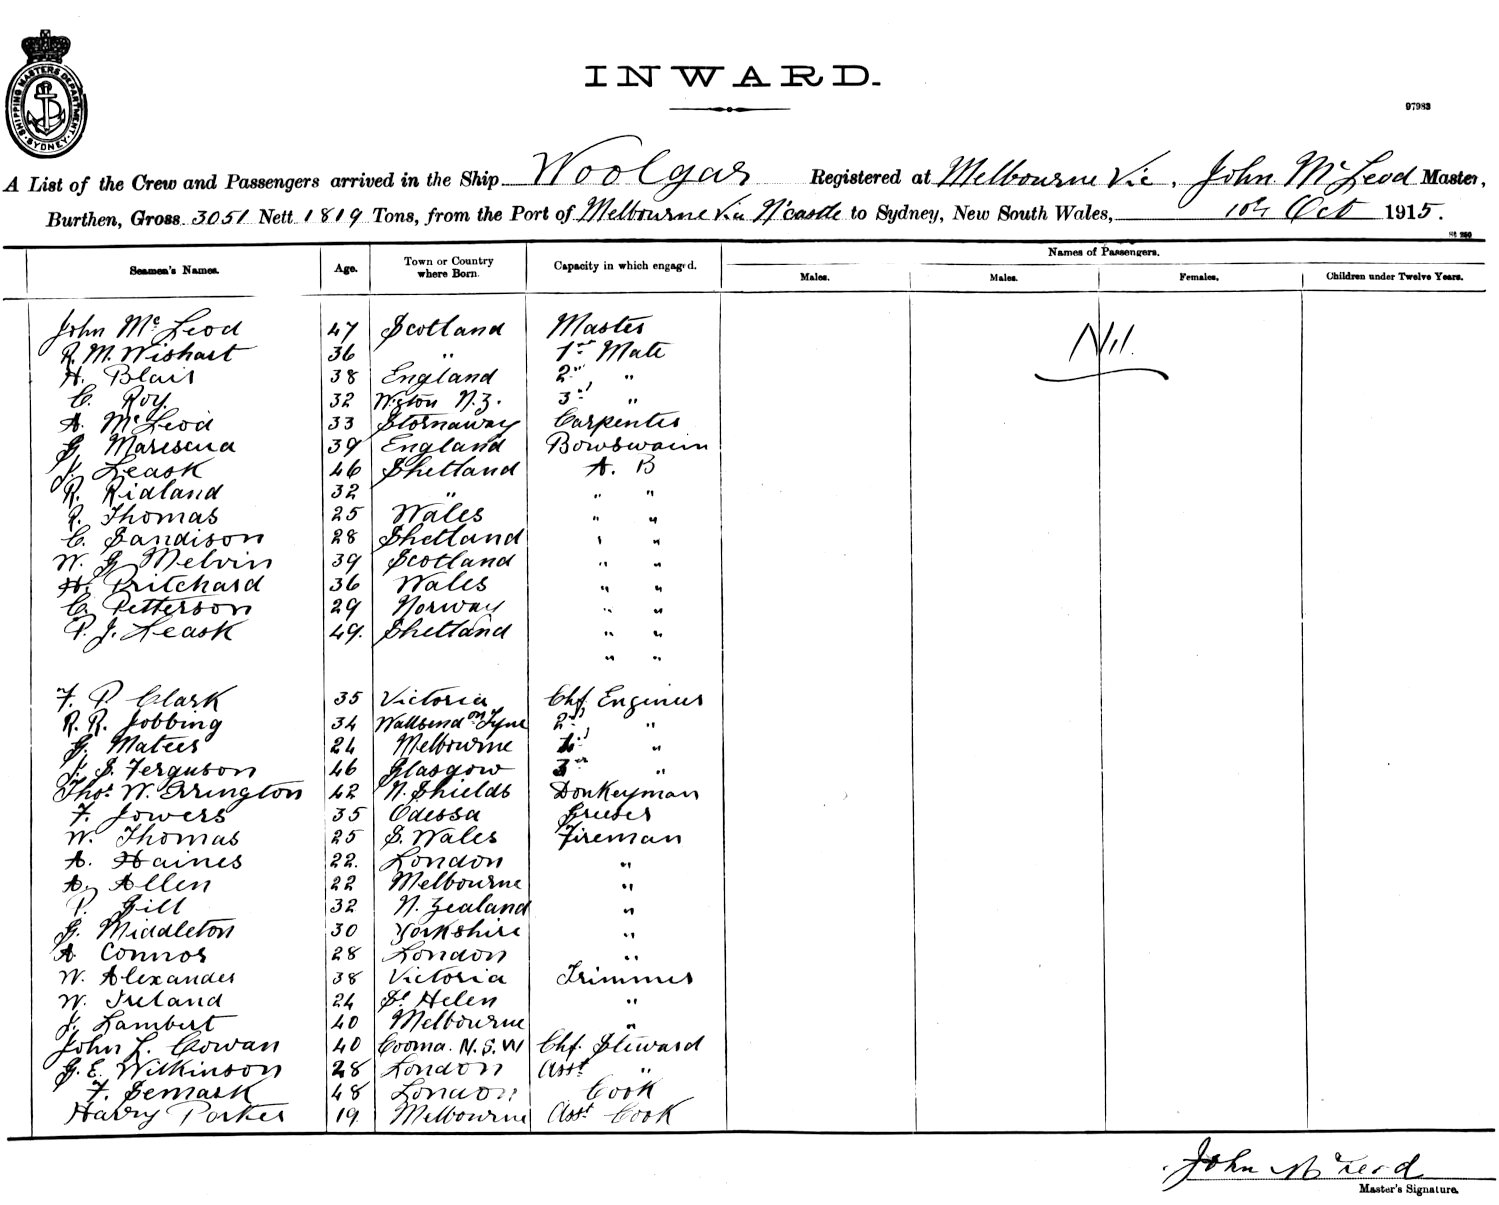 SHIPPING MASTERS DEPARTMENT. SYDNEY.
INWARD.
97983
A List of the Crew and Passengers arrived in the Ship Woolgar Registered at Melbourne Vic, John McLeod Master,
Burthen, Gross 3051 Nett 1819 Tons, from the Port of Melbourne via N'castle to Sydney, New South Wales, 10th Oct 1915.
St 250
Seamen's Names. Age. Town or Country where Born. Capacity in which engaged. Names of Passengers.
Males. Males. Females. Children under Twelve Years.
John McLeod 47 Scotland Master
Nil.
R. M. Wishart 36 " 1st Mate
H. Blair 38 England 2nd "
C. Roy 32 W'gton N.Z. 3rd "
A. McLeod 33 Stornaway Carpenter
G. 39 England Bowswain
J. Leask 46 Shetland A. B
R. Ridland 32 " " "
R. Thomas 25 Wales " "
C. Sandison 28 Shetland " "
W. G Melvin 39 Scotland " "
H. Pritchard 36 Wales " "
C. Petterson 29 Norway " "
P. J. Leask 49. Shetland " "
" "
F. P Clark 35 Victoria Chf Engineer
R. R. Jobbing 34 Wallsend on Tyne 2nd "
G. Mateer 24 Melbourne "
J. S. Ferguson 46 Glasgow 3rd "
Thos W. Errington 42 N. Shields Donkeyman
F. Jowers 35 Odessa Greeser
W. Thomas 25 S. Wales Fireman
A. Haines 22. London "
A. Allen 22 Melbourne "
P. Gill 32 N. Zealand "
G. Middleton 30 Yorkshire "
A Connor 28 London "
W. Alexander 38 Victoria Trimmer
W. Ireland 24 St Helen "
J. Lambert 40 Melbourne "
John L. Cowan 40 Cooma. N.S.W Chf. Steward
G. E. Wilkinson 28 London Asst "
F. Semark 48 London Cook
Harry Porter 19 Melbourne Asst Cook
John McLeod
Master's Signature.